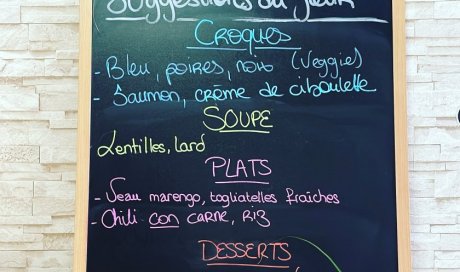 Suggestions du jour
CROQUES
- Bleu, poires, noix (Veggie)
- Saumon, crème de ciboulette
SOUPE
Lentilles, lard
PLATS
- Veau marengo, tagliatelles fraîches
- Chili con carne, riz
DESSERTS